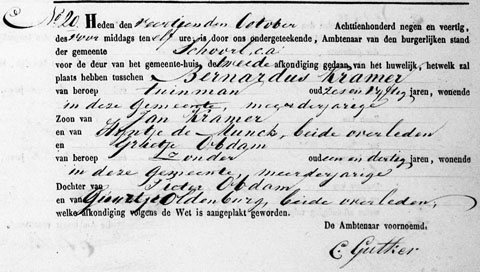 No. 20. Heden den veertienden October Achttienhonderd negen en veertig,
des voor middags ten elf ure, is door ons ondergeteekende, Ambtenaar van den burgerlijken stand
der gemeente Schoorl, c.a.
voor de deur van het gemeente-huis, de tweede afkondiging gedaan van het huwelijk, hetwelk zal
plaats hebben tusschen Bernardus Kramer
van beroep tuinman oud zes en vijftig jaren, wonende
in deze Gemeente, meerderjarige
Zoon van Jan Kramer
en van Aafntje de Munck, beide overleden
en Grietje Obdam
van beroep zonder oud een en dertig jaren, wonende
in deze Gemeente, meerderjarige
Dochter van Pieter Obdam
en van Guurtje Oldenburg, beide overleden,
welke afkondiging volgens de Wet is aangeplakt geworden.
De Ambtenaar voornoemd.
C. Gutker